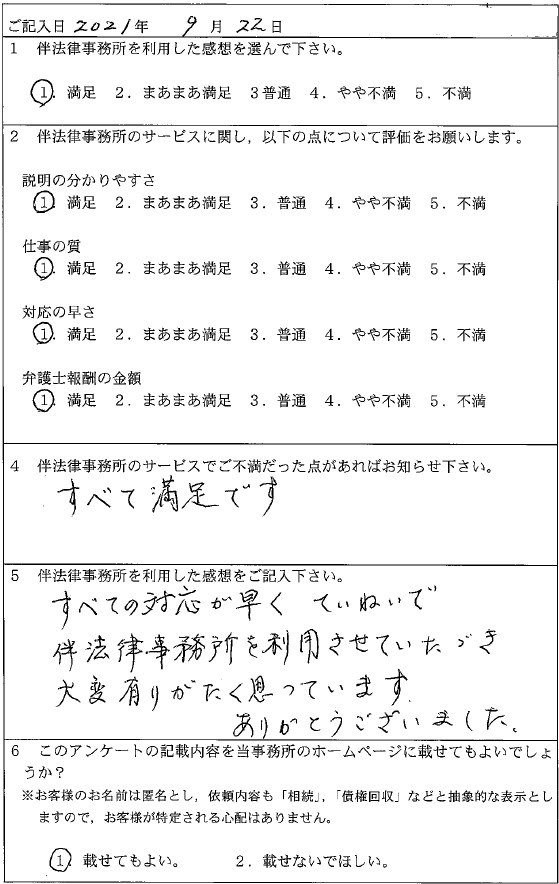 ご記入日 2021年 9月 22日
1 伴法律事務所を利用した感想を選んで下さい。
1. 満足 2. まあまあ満足 3普通 4. やや不満 5. 不満
2 伴法律事務所のサービスに関し,以下の点について評価をお願いします。
説明の分かりやすさ
1. 満足 2. まあまあ満足 3. 普通 4. やや不満 5. 不満
仕事の質
1. 満足 2. まあまあ満足 3. 普通 4. やや不満 5. 不満
対応の早さ
1. 満足 2. まあまあ満足 3. 普通 4. やや不満 5. 不満
弁護士報酬の金額
1. 満足 2. まあまあ満足 3. 普通 4. やや不満 5. 不満
4 伴法律事務所のサービスでご不満だった点があればお知らせ下さい。
すべて満足です
5 伴法律事務所を利用した感想をご記入下さい。
すべての対応が早く ていねいで
伴法律事務所を利用させていただき
大変有りがたく思っています。
ありがとうございました。
6 このアンケートの記載内容を当事務所のホームページに載せてもよいでしょ
うか?
※お客様のお名前は匿名とし,依頼内容も「相続」,「債権回収」などと抽象的な表示とし
ますので,お客様が特定される心配はありません。
1. 載せてもよい。 2. 載せないでほしい。